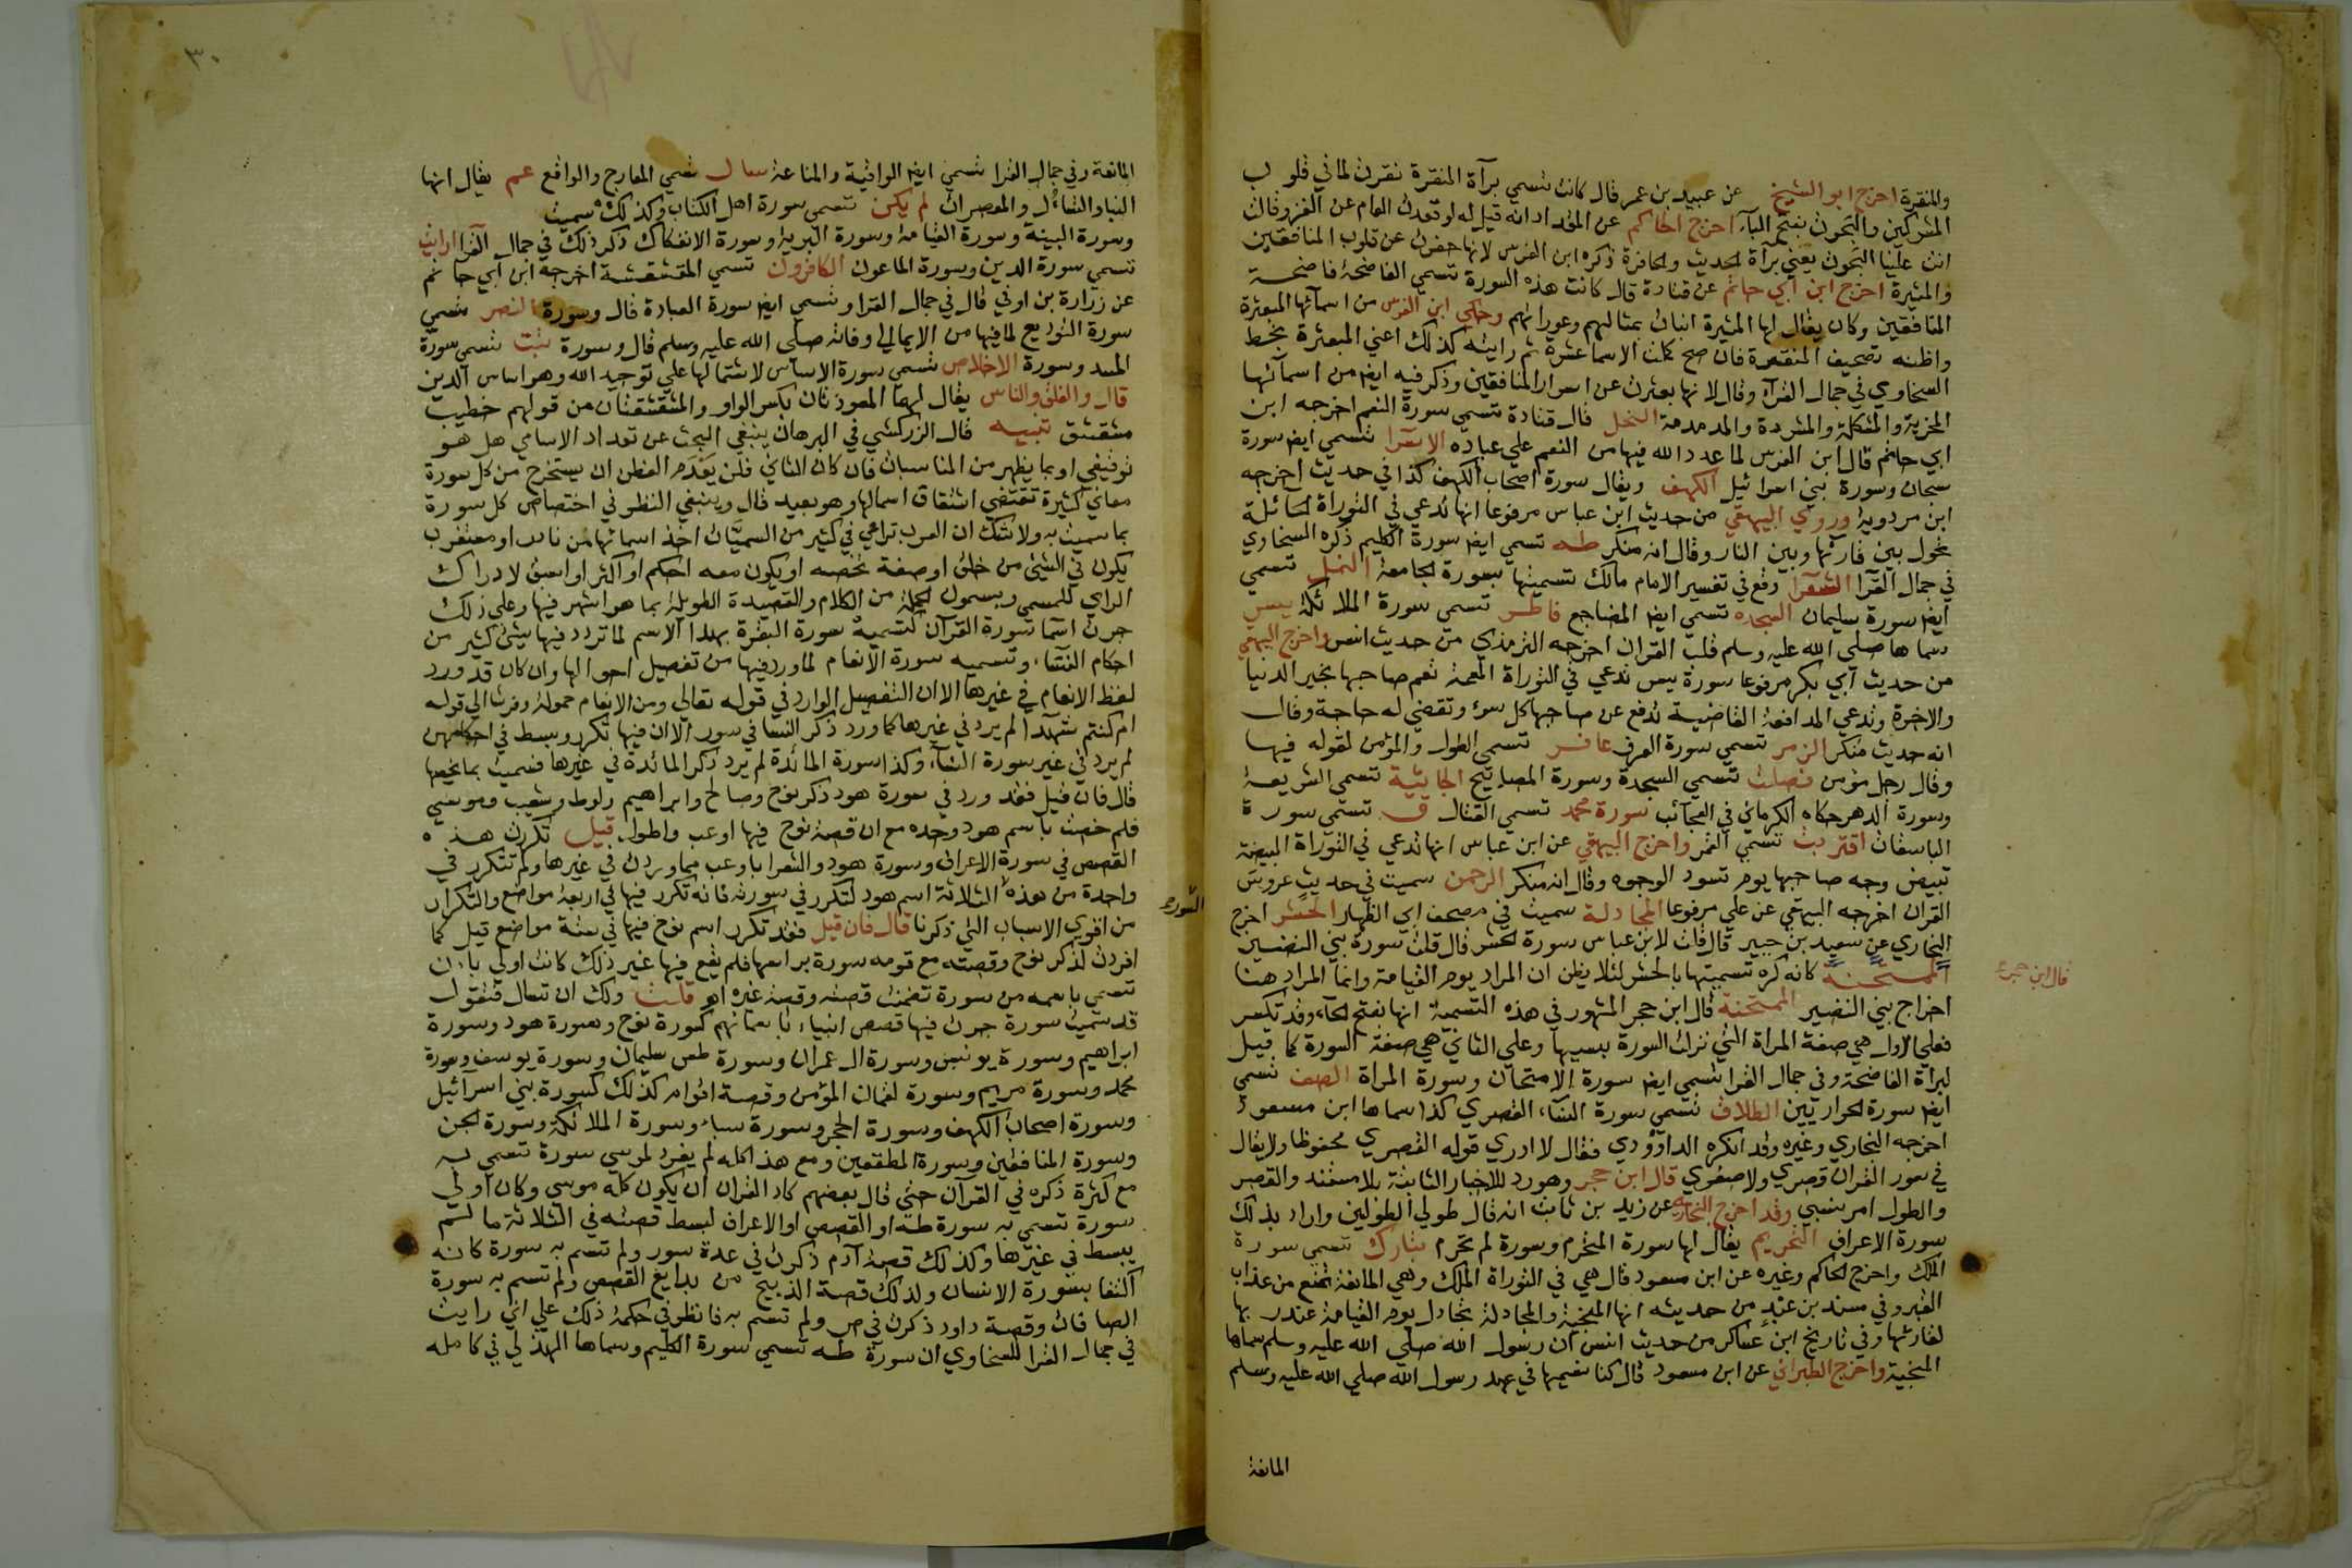 والمنقرة اخرج ابو الشيخ عن عبيد بن عمر قال كانت تسمي برآة المنقرة نقرت لما في قلوب
المشركين والبحوث بفتح البآء اخرج الحاكم عن المقداد انه قيل له لو قعدت العام عن الغزو قالت
اتت علينا البحوث يعني برآة الحديث والحافرة ذكره ابن الفرس لانها حفرت عن قلوب المنافقين
والمثيرة اخرج ابن ابي حاتم عن قتادة قال كانت هذه السورة تسمي الفاضحة فاضحة
المنافقين وكان يقال لها المثيرة انبات بمثالبهم وعوراتهم وحكي ابن الفرس من اسمآئها المبعثرة
واظنه تصحيف المنقرة فان صح كملت الاسما عشرة ثم رايته كذلك اعني المبعثرة بخط
السخاوي في جمال القرآء وقال لانها بعثرت عن اسرار المنافقين وذكر فيه ايضا من اسمآئها
المخزية والمنكلة والمشردة والمدمدمة النحل قال قتادة تسمي سورة النعم اخرجه ابن
ابي حاتم قال ابن الفرس لما عدد الله فيها من النعم علي عباده الاسرا تسمي ايضا سورة
سبحان وسورة بني اسرائيل الكهف ويقال سورة اصحاب الكهف كذا في حديث اخرجه
ابن مردوية وروي البيهقي من حديث ابن عباس مرفوعا انها تدعي في التوراة الحائلة
تحول بين قارئها وبين النار وقال انه منكر طه تسمي ايضا سورة الكليم ذكره السخاوي
في جمال القرآ الشعرا وقع في تفسير الامام مالك تسميتها بسورة الجامعة النمل تسمي
ايضا سورة سليمان السجده تسمي ايضا المضاجع فاطر تسمي سورة الملائكة يس
سماها صلي الله عليه وسلم قلب القران اخرجه الترمذي من حديث انس واخرج البيهقي
من حديث ابي بكر مرفوعا سورة يس تدعي في التوراة المعمة تعم صاحبها بخير الدنيا
والاخرة وتدعي المدافعة القاضية تدفع عن صاحبها كل سوء وتقضي له حاجة وقال
انه حديث منكر الزمر تسمي سورة الغرف غافر تسمي الطول والمؤمن لقوله فيها
وقال رجل مؤمن فصلت تسمي السجدة وسورة المصابيح الجاثية تسمي الشريعة
وسورة الدهر حكاه الكرماني في العجائب سورة محمد تسمي القتال ق تسمي سورة
الباسقات اقتربت تسمي القمر واخرج البيهقي عن ابن عباس انها تدعي في التوراة المبيضة
تبيض وجه صاحبها يوم تسود الوجوه وقال انه منكر الرحمن سميت في حديث عروس
القران اخرجه البيهقي عن علي مرفوعا المجادلة سميت في مصحف ابي الظهار الحشر اخرج
البخاري عن سعيد بن جبير قال قلت لابن عباس سورة الحشر قال قلت سورة بني النضير
الممتحنة كانه كره تسميتها بالحشر لئلا يظن ان المراد يوم القيامة وانما المراد هنا
قال ابن حجر
اخراج بني النضير الممتحنة قال ابن حجر المشهور في هذه التسمية انها بفتح الحآء وقد تكسر
فعلي الاول هي صفة المراة التي نزلت السورة بسببها وعلي الثاني هي صفة السورة كما قيل
لبراة الفاضحة وفي جمال القرا تسمي ايضا سورة الامتحان وسورة المراة الصف تسمي
ايضا سورة الحواريين الطلاق تسمي سورة النسآء القصري كذا سماها ابن مسعود
اخرجه البخاري وغيره وقد انكره الداوودي فقال لا ادري قوله القصري محفوظا ولا يقال
في سور القران قصري ولا صغري قال ابن حجر وهو رد للاخبار الثابتة بلا مستند والقصر
والطول امر نسبي وقد اخرج البخاري عن زيد بن ثابت انه قال طولي الطولين واراد بذلك
سورة الاعراف التحريم يقال لها سورة المتحرم وسورة لم تحرم تبارك تسمي سورة
الملك واخرج الحاكم وغيره عن ابن مسعود قال هي في التوراة الملك وهي المانعة تمنع من عذاب
القبر وفي مسند بن عبد من حديثه انها المنجية والمجادلة تجادل يوم القيامة عند ربها
لقارئها وفي تاريخ ابن عساكر من حديث انس ان رسول الله صلي الله عليه وسلم سماها
المنجية واخرج الطبراني عن ابن مسعود قال كنا نسميها في عهد رسول الله صلي الله عليه وسلم
المانعة
٣٠
المانعة وفي جمال القرا تسمي ايضا الواقية والمناعة سال تسمي المعارج والواقع عم يقال لها
النبا والتساءل والمعصرات لم يكن تسمي سورة اهل الكتاب وكذلك سميت
وسورة البينة وسورة القيامة وسورة البرية وسورة الانفكاك ذكر ذلك في جمال القرا ارايت
تسمي سورة الدين وسورة الماعون الكافرون تسمي المقشقشة اخرجه ابن ابي حاتم
عن زرارة بن اوفي قال في جمال القرا وتسمي ايضا سورة العبادة قال وسورة النصر تسمي
سورة التوديع لما فيها من الايما الي وفاته صلي الله عليه وسلم قال وسورة تبت تسمي سورة
المسد وسورة الاخلاص تسمي سورة الاساس لاشتمالها علي توحيد الله وهو اساس الدين
قال والفلق والناس يقال لهما المعوذتان بكسر الواو والمشقشقتان من قولهم خطيب
مشقشق تنبيه قال الزركشي في البرهان ينبغي البحث عن تعداد الاسامي هل هو
توقيفي او بما يظهر من المناسبات فان كان الثاني فلن يعدم الفطن ان يستخرج من كل سورة
معاني كثيرة تقتضي اشتقاق اسمالها وهو بعيد قال وينبغي النظر في اختصاص كل سورة
بما سميت به ولا شك ان العرب تراعي في كثير من المسميات اخذ اسمائها من نادر او مستغرب
يكون في الشيئ من خلق او صفة تخصه او يكون معه احكم او اكثر او اسبق لادراك
الراي للمسمي ويسمون الجملة من الكلام والقصيدة الطويلة بما هو اشهر فيها وعلي ذلك
جرت اسما سورة القرآن كتسمية سورة البقرة بهذا الاسم لما تردد فيها شيئ كثير من
احكام النسآء وتسميه سورة الانعام لما ورد فيها من تفصيل احوالها وان كان قد ورد
لفظ الانعام في غيرها الا ان التفصيل الوارد في قوله تعالي ومن الانعام حمولة وفرشا الي قوله
ام كنتم شهدآ لم يرد في غيرها كما ورد ذكر النسا في سور الا ان فيها تكرر وبسط في احكامهن
لم يرد في غير سورة النسآء وكذا سورة المائدة لم يرد ذكر المائدة في غيرها فسميت بما يخصها
قال فان قيل فقد ورد في سورة هود ذكر نوح وصالح وابراهيم ولوط وشعيب وموسي
فلم خصت باسم هود وحده مع ان قصة نوح فيها اوعب واطول قيل تكررت هذه
القصص في سورة الاعراف وسورة هود والشعرا باوعب مما وردت في غيرها ولم تتكرر في
واحدة من هذه الثلاثة اسم هود كتكرر في سورته فانه تكرر فيها في اربعة مواضع والتكرار
السورة
من اقوي الاسباب التي ذكرنا قال فان قيل فقد تكرر اسم نوح فيها في ستة مواضع قيل كما
افردت لذكر نوح وقصته مع قومه سورة براسها فلم يقع فيها غير ذلك كانت اولي بان
تسمي باسمه من سورة تضمنت قصته وقصة غيره اهـ قلت ولك ان تسال فتقول
قد سميت سورة جرت فيها قصص انبياء باسمائهم كسورة نوح وسورة هود وسورة
ابراهيم وسورة يونس وسورة ال عمران وسورة طس سليمان وسورة يوسف وسورة
محمد وسورة مريم وسورة لقمان المؤمن وقصة اقوام كذلك كسورة بني اسرآئيل
وسورة اصحاب الكهف وسورة الحجر وسورة سباء وسورة الملائكة وسورة الجن
وسورة المنافقين وسورة المطففين ومع هذا كله لم يفرد لموسي سورة تسمي به
مع كثرة ذكره في القرآن حتي قال بعضهم كاد القران ان يكون كله موسي وكان اولي
سورة تسمي به سورة طه او القصص او الاعراف لبسط قصته في الثلاثة ما لم
يبسط في غيرها وكذلك قصة آدم ذكرت في عدة سور ولم تسم به سورة كانه
اكتفا بسورة الانسان ولذلك قصة الذبيح من بدايع القصص ولم تسم به سورة
الصافات وقصة داود ذكرت في ص ولم تسم به فانظر في حكمة ذلك علي اني رايت
في جمال القرا للسخاوي ان سورة طه تسمي سورة الكليم وسماها الهذلي في كامله